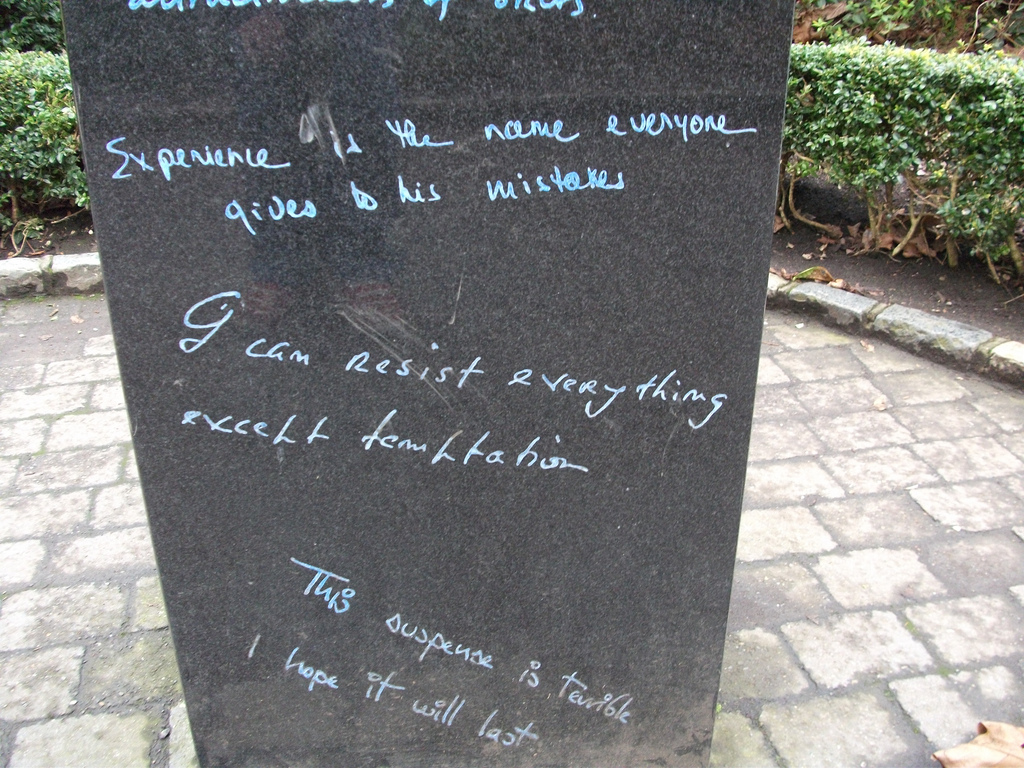 of others.
Experience is the name everyone
gives to his mistakes
I can resist everything
except temptation
This suspense is terrible
I hope it will last